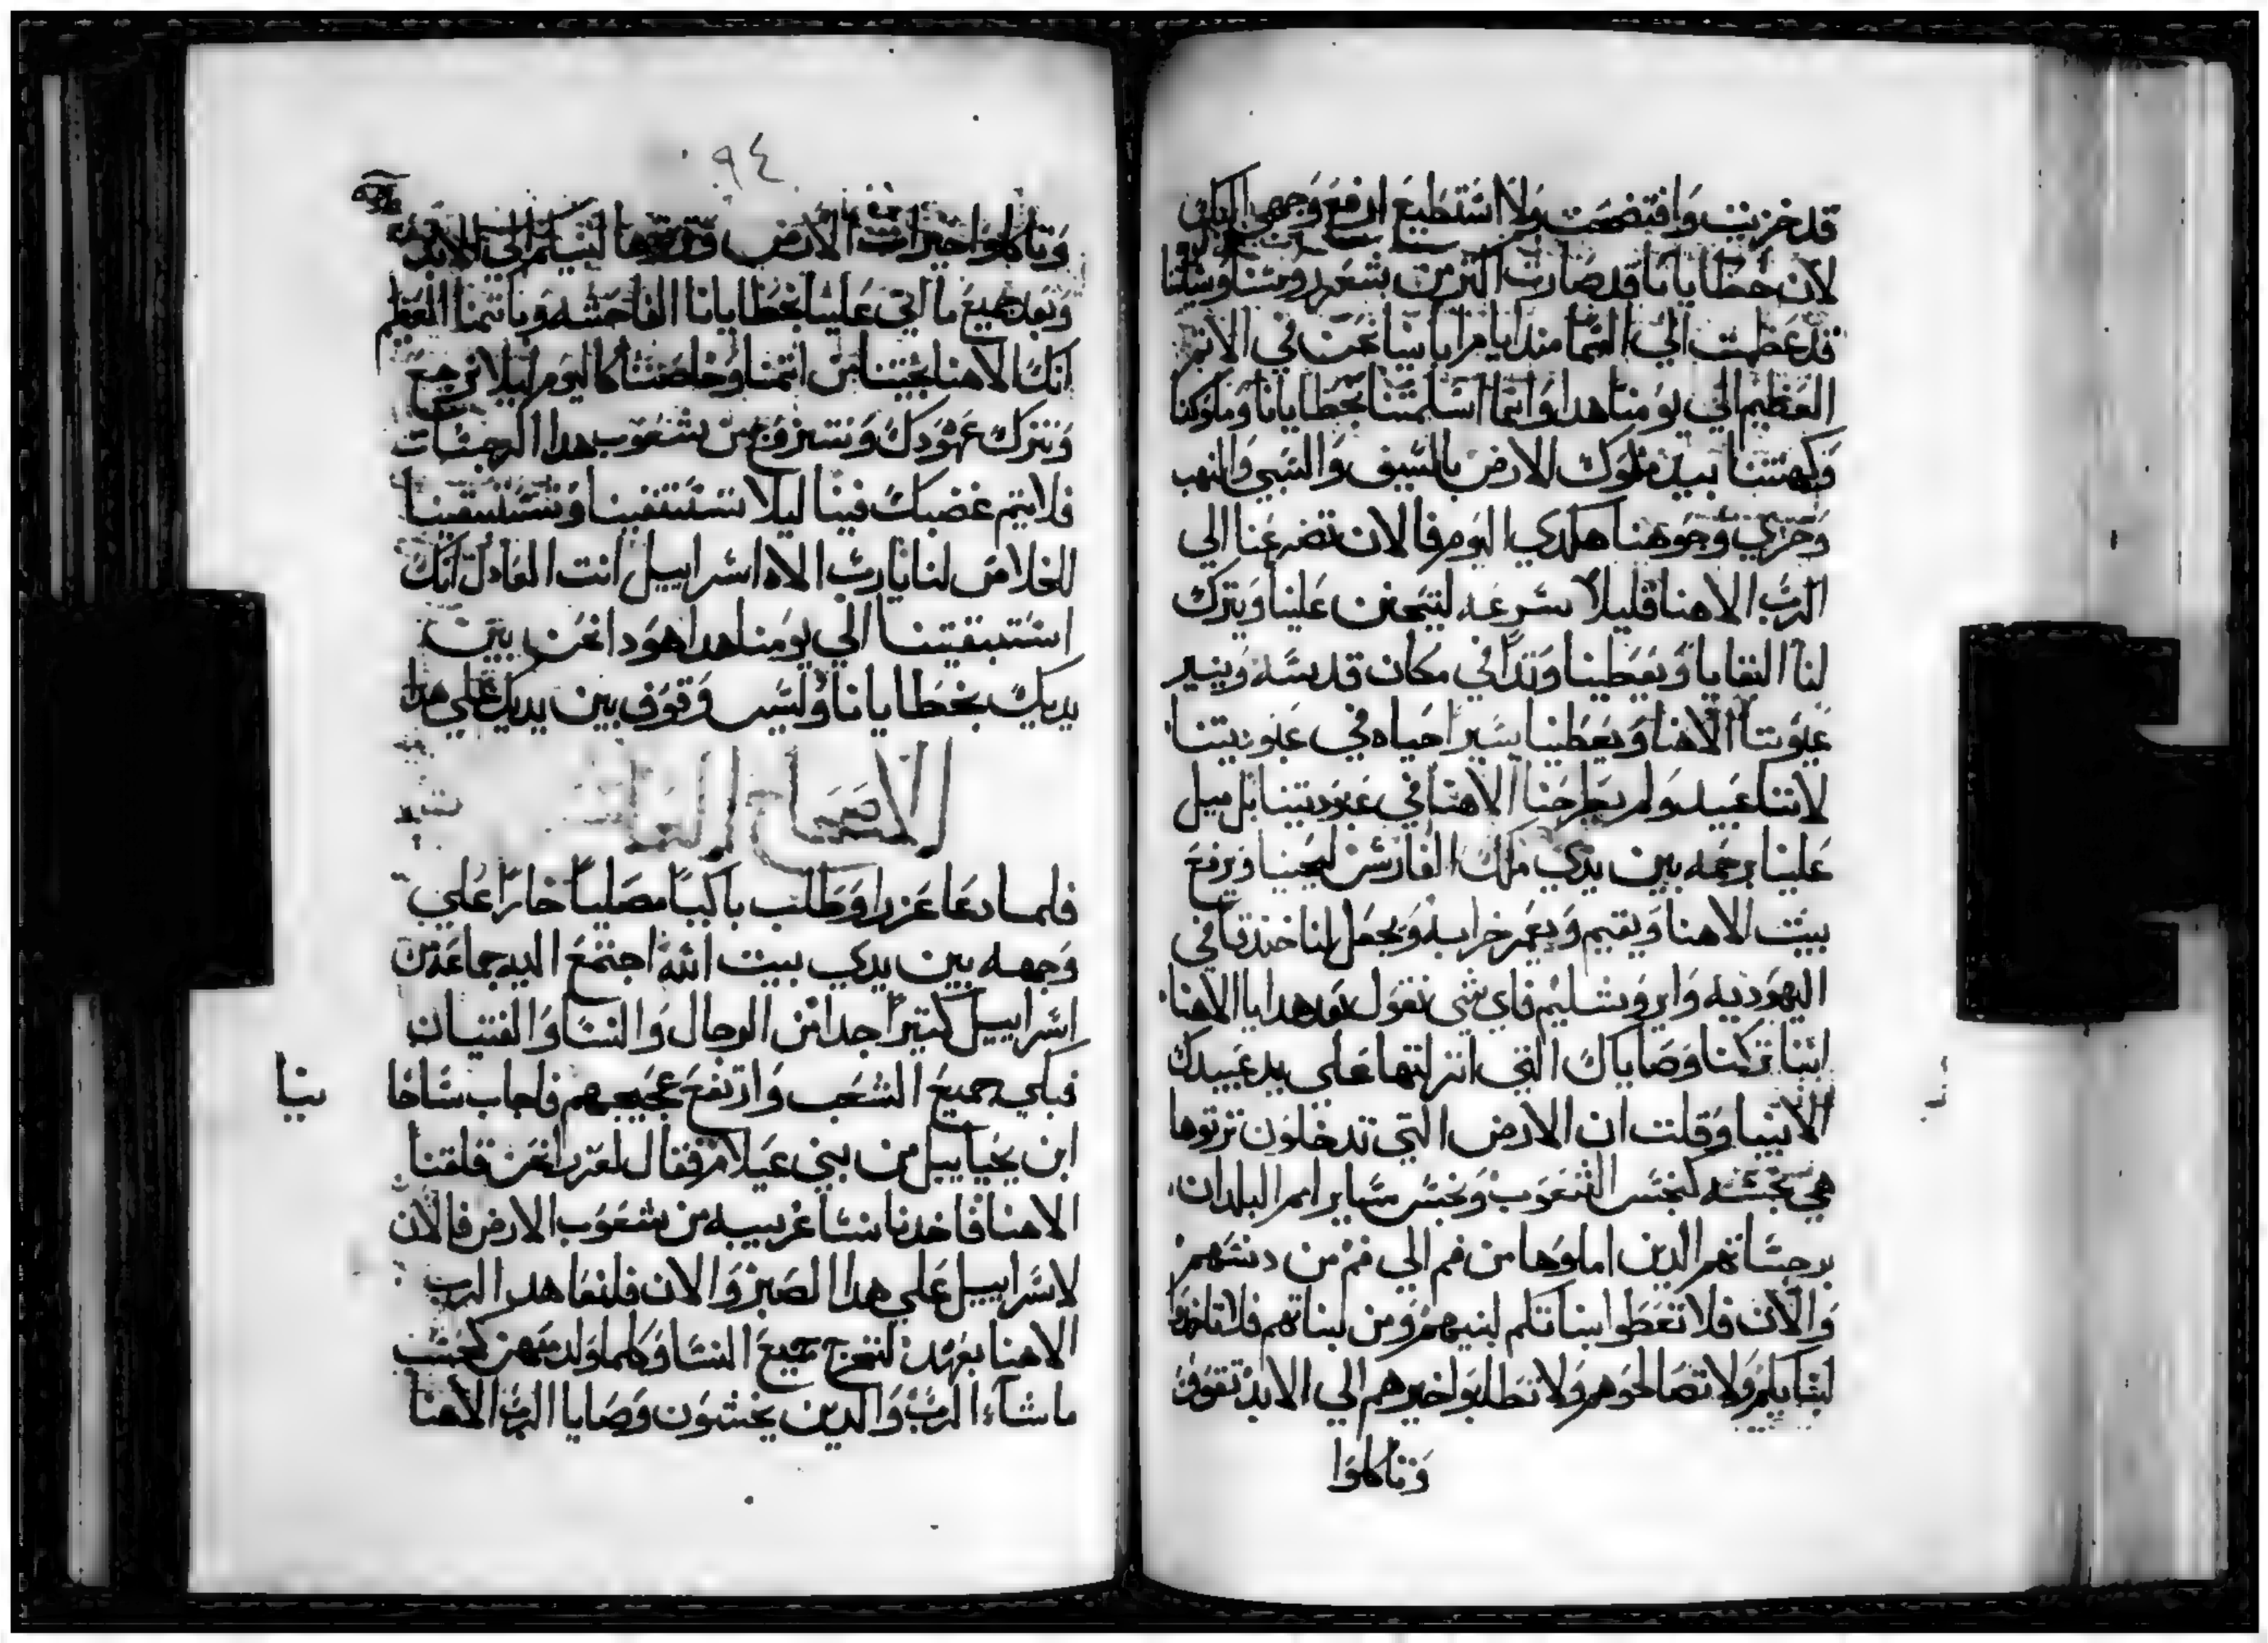 قد خزيت وافتضحت ولا استطيع ارفع وجهي اليك
لان خطايانا قد صارت اكتر من شعر روسنا وسياتنا
قد عظمت الي السما مند ايام ابايا نحن في الاتم
العظيم الي يومنا هدا وانما اسلمتنا بخطايانا وملوكنا
وكهنتنا بيد ملوك الارض بالسيف والسبي والنهب
وخزي وجوهنا هكدي اليوم فالان تضرعنا الي
الرب الاهنا قليلا بسرعه ليتحنن علينا ويترك
لنا البقايا ويعطينا وتدا في مكان قدسه وينير
عيوننا الاهنا ويعطينا يسير احياه في عبوديتنا
لاننا عبيد ولم يطرحنا الاهنا في عبوديتنا بل ميل
علينا برحمه بين يدي ملك الفارس ليحيينا ويرفع
بيت الاهنا ويقيم ويعمر خرابه ويجعل لنا خندقا في
اليهوديه وايروشليم فاي شي نقول بعد هدا يا الاهنا
اننا تركنا وصاياك التي انزلتها علي يد عبيدك
الانبيا وقلت ان الارض التي تدخلون ترتوها
هي نجسه كنجس الشعوب ونجس ساير امم البلدان
برجساتهم الدين املوها من فم الي فم من دنسهم
والان فلا تعطوا بناتكم لبنيهم ومن بناتهم فلا تاخدوا
لبنايكم ولا تصالحوهم ولا تطلبوا خيرهم الي الابد تقوون
وتاكلوا
٩٤
وتاكلوا خيرات الارض وترتوها لبنيكم الي الابد
وبعد جميع ما اتي علينا بخطايانا الفاحشه وباتمنا العظيم
انك الاهنا نجيتنا من اتمنا وخلصتنا كاليوم ليلا نرجع
ونترك عهودك ونتزوج من شعوب هدا الرجسات
فلا يتم غضبك فينا ليلا تستنفينا وتستبقينا
للخلاص لنا يارب الاه اسراييل انت العادل انك
استبقيتنا الي يومنا هدا هودا نحن بين
يديك بخطايانا وليس وقوف بين يديك علي هدا
الاصحاح
فلما دعا عزرا وطلب باكيا مصليا خارا علي
وجهه بين يدي بيت الله اجتمع اليه جماعه من
اسراييل كتيرا جدا من الرجال والنسا والفتيان
فبكي جميع الشعب وارتفع عجيجهم فاجاب ساخا
نيا
ابن يحياييل من بني عيلام فقال لعزرا نحن قلقنا
الاهنا فاخدنا نسا غريبه من شعوب الارض فالان
لاسراييل علي هدا الصبر والان فلنعاهد الرب
الاهنا بعهد لنخرج جميع النسا وكلما ولد منهن كحسب
ماشاء الرب والدين يخشون وصايا الرب الاهنا